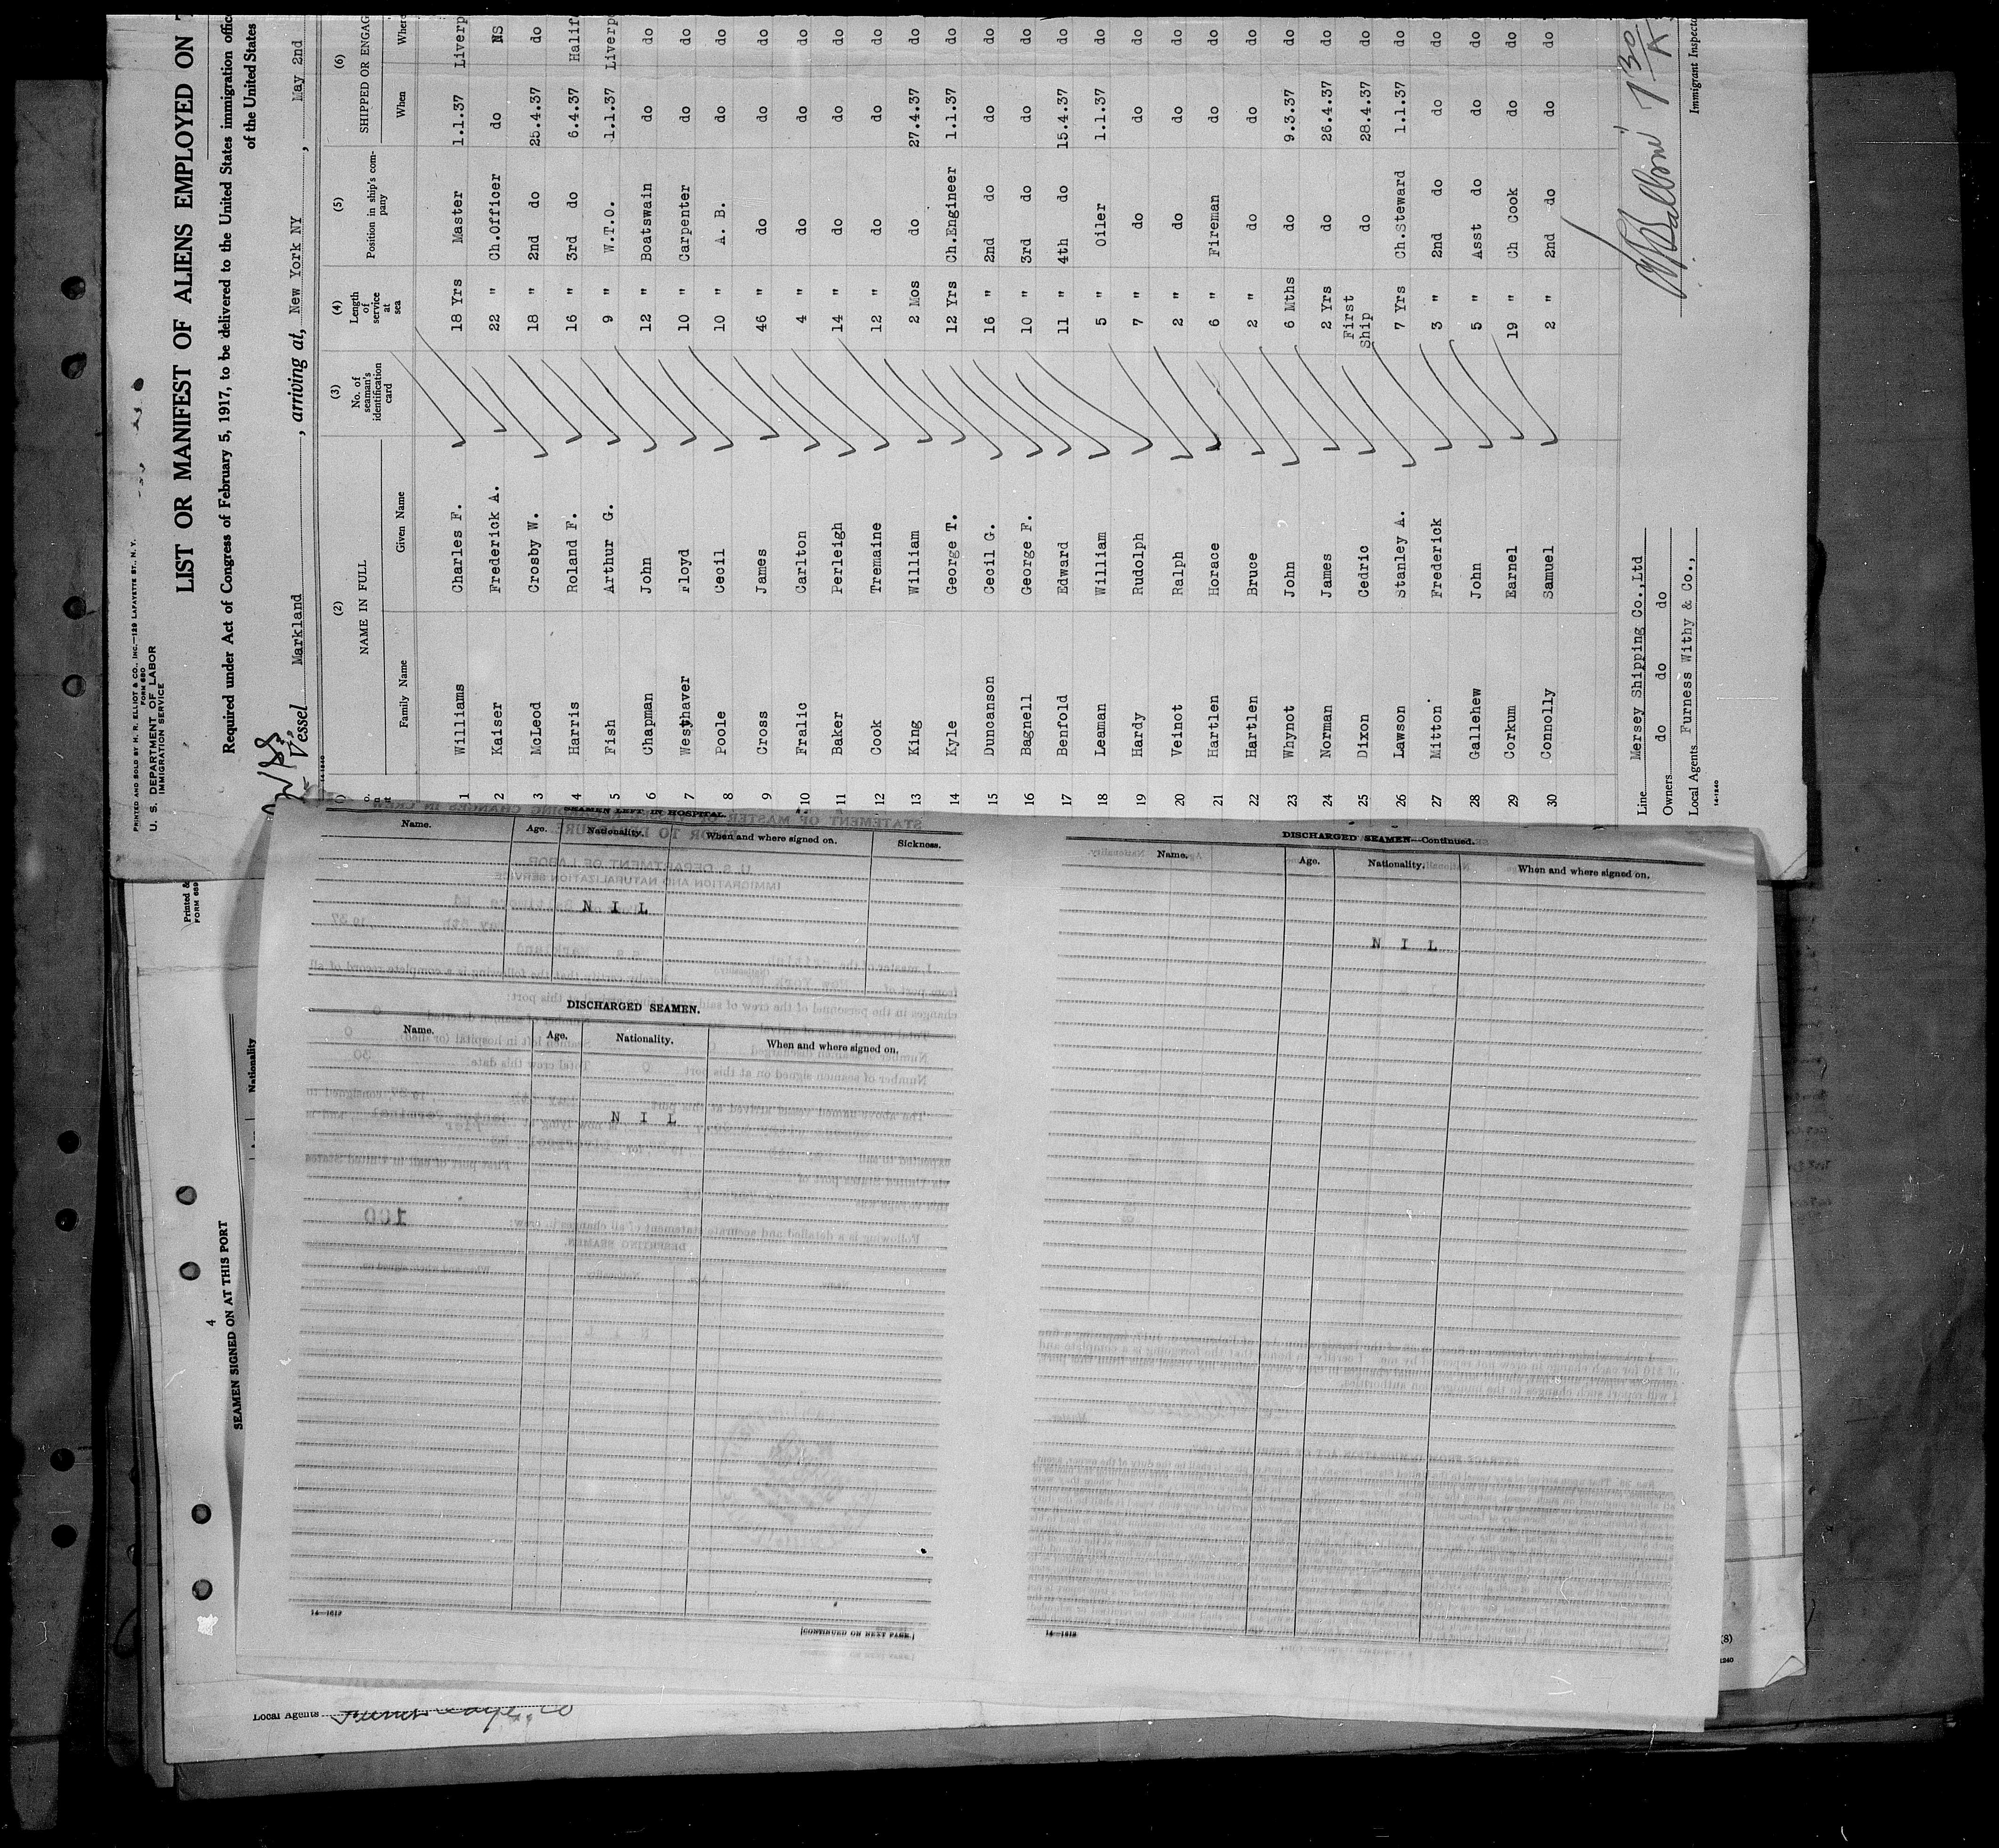 PRINTED AND SOLD BY H. R. ELLIOT & CO., INC.—129 LAFAYETTE ST., N. Y.
FORM 680
U. S. DEPARTMENT OF LABOR
IMMIGRATION SERVICE
LIST OR MANIFEST OF ALIENS EMPLOYED ON
Required under Act of Congress of February 5, 1917, to be delivered to the United States immigration
of the United States
Vessel Markland , arriving at, New York NY , May 2nd
14-1240
(2) (3) (4) (5) (6)
NAME IN FULL No. of seaman's identification card Length of service at sea Position in ship's company SHIPPED OR ENGAG
Family Name Given Name When Where
1 Williams Charles F. 18 Yrs Master 1.1.37 Liverp
2 Kaiser Frederick A. 22 " Ch.Officer do NS
3 McLeod Crosby W. 18 " 2nd do 25.4.37 do
4 Harris Roland F. 16 " 3rd do 6.4.37 Halif
5 Fish Arthur G. 9 " W.T.O. 1.1.37 Liverp
6 Chapman John 12 " Boatswain do do
7 Westhaver Floyd 10 " Carpenter do do
8 Poole Cecil 10 " A. B. do do
9 Cross James 46 " do do do
10 Fralic Carlton 4 " do do do
11 Baker Perleigh 14 " do do do
12 Cook Tremaine 12 " do do do
13 King William 2 Mos do 27.4.37 do
14 Kyle George T. 12 Yrs Ch.Engineer 1.1.37 do
15 Duncanson Cecil G. 16 " 2nd do do do
16 Bagnell George F. 10 " 3rd do do do
17 Benfold Edward 11 " 4th do 15.4.37 do
18 Leaman William 5 " Oiler 1.1.37 do
19 Hardy Rudolph 7 " do do do
20 Veinot Ralph 2 " do do do
21 Hartlen Horace 6 " Fireman do do
22 Hartlen Bruce 2 " do do do
23 Whynot John 6 Mths do 9.3.37 do
24 Norman James 2 Yrs do 26.4.37 do
25 Dixon Cedric First Ship do 28.4.37 do
26 Lawson Stanley A. 7 Yrs Ch.Steward 1.1.37 do
27 Mitton Frederick 3 " 2nd do do do
28 Gallehew John 5 " Asst do do do
29 Corkum Earnel 19 " Ch Cook do do
30 Connolly Samuel 2 " 2nd do do do
Line Mersey Shipping Co.,Ltd
Owners do do do
Local Agents Furness Withy & Co.,
14-1240
Immigrant Inspecto
SEAMEN LEFT IN HOSPITAL.
Name. Age. Nationality. When and where signed on. Sickness.
N I L
DISCHARGED SEAMEN.
Name. Age. Nationality. When and where signed on.
N I L
14—1612
[CONTINUED ON NEXT PAGE.]
DISCHARGED SEAMEN—Continued.
Name. Age. Nationality. When and where signed on.
N I L
14—1612
Printed &
FORM 689
4
SEAMEN SIGNED ON AT THIS PORT
Nationality
Local Agents
(8)
1240